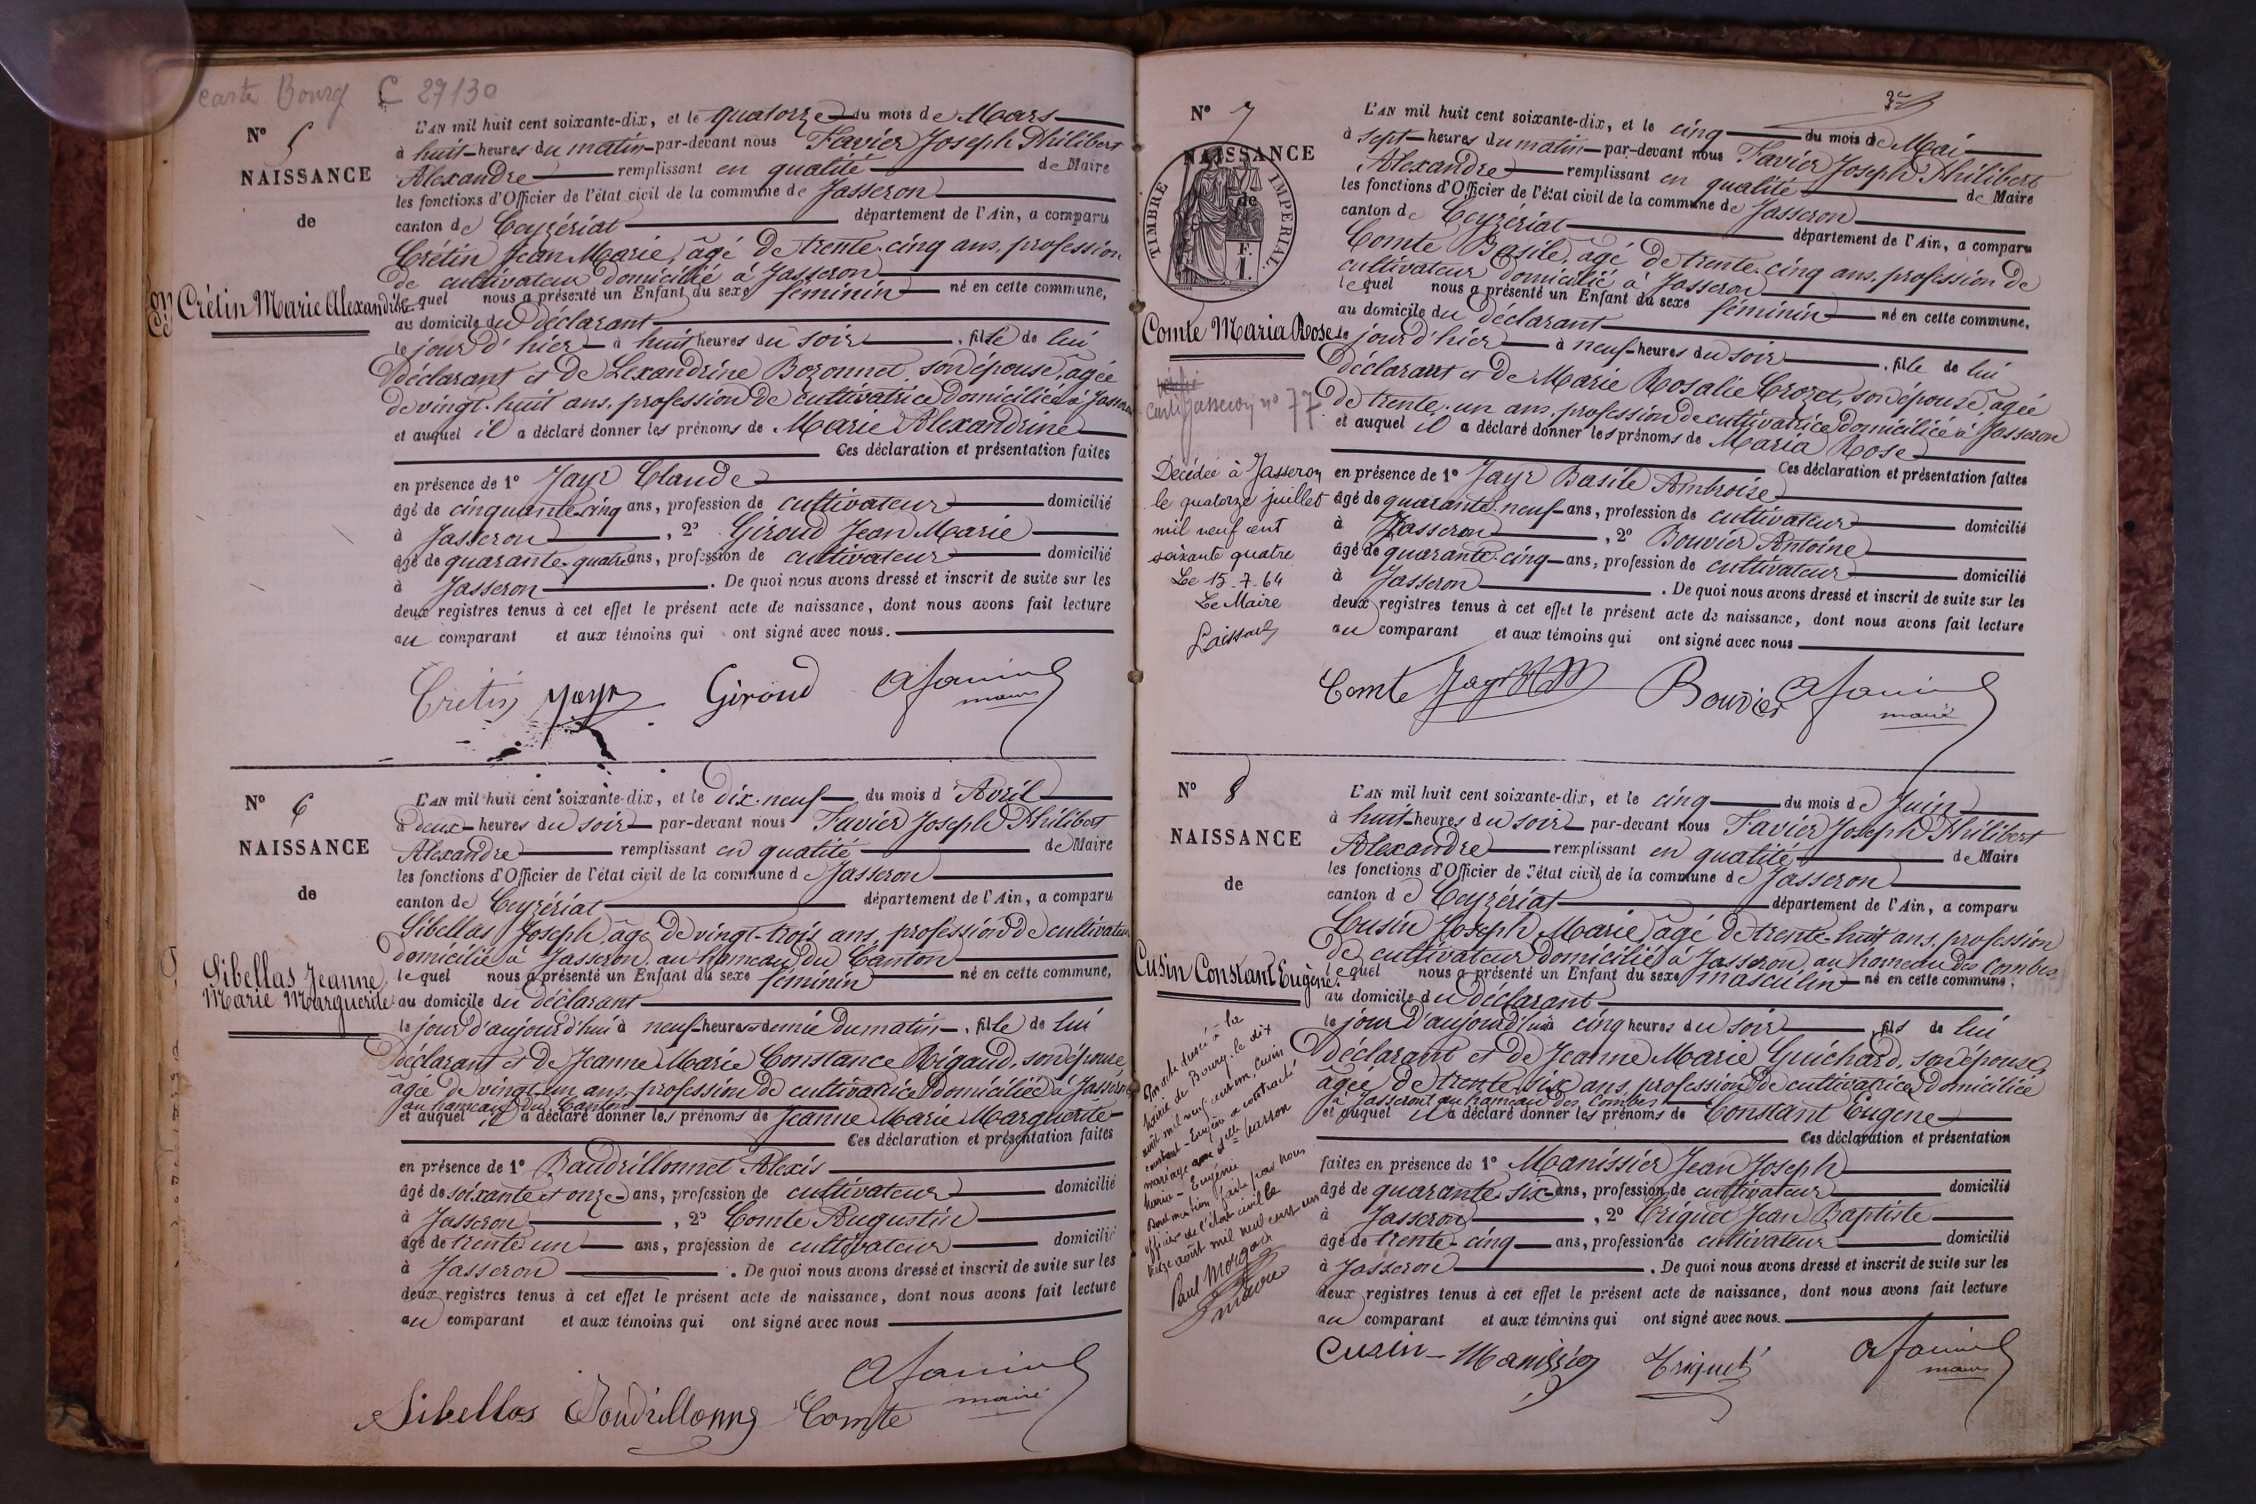 carte Bourg C 27130
N° 5
NAISSANCE
de
Crétin Marie Alexandrine
L'AN mil huit cent soixante-dix, et le quatorze du mois de Mars
à huit heures du matin par-devant nous Favier Joseph Philibert
Alexandre remplissant en qualité de Maire
les fonctions d'Officier de l'état civil de la commune de Jasseron
canton de Ceyzériat département de l'Ain, a comparu
Crétin Jean Marie, âgé de trente-cinq ans, profession
de cultivateur domicilié à Jasseron
lequel nous a présenté un Enfant du sexe féminin né en cette commune,
au domicile du déclarant
le jour d'hier à huit heures du soir, fille de lui
déclarant et de Lexandrine Bozonnet, son épouse, âgée
de vingt-huit ans, profession de cultivatrice domiciliée à Jasseron
et auquel il a déclaré donner les prénoms de Marie Alexandrine
Ces déclaration et présentation faites
en présence de 1° Jayr Claude
âgé de cinquante-cinq ans, profession de cultivateur domicilié
à Jasseron, 2° Giroud Jean Marie
âgé de quarante-quatre ans, profession de cultivateur domicilié
à Jasseron. De quoi nous avons dressé et inscrit de suite sur les
deux registres tenus à cet effet le présent acte de naissance, dont nous avons fait lecture
au comparant et aux témoins qui ont signé avec nous.
Cretin Jayr Giroud A favier
maire
N° 6
NAISSANCE
de
Sibellas Jeanne
Marie Marguerite
L'AN mil huit cent soixante-dix, et le dix-neuf du mois d'Avril
à deux heures du soir par-devant nous Favier Joseph Philibert
Alexandre remplissant en qualité de Maire
les fonctions d'Officier de l'état civil de la commune de Jasseron
canton de Ceyzériat département de l'Ain, a comparu
Sibellas Joseph, âgé de vingt-trois ans, profession de cultivateur
domicilié à Jasseron, au hameau du Canton
lequel nous a présenté un Enfant du sexe féminin né en cette commune,
au domicile du déclarant
le jour d'aujourd'hui à neuf heures demie du matin, fille de lui
déclarant et de Jeanne Marie Constance Rigaud, son épouse,
âgée de vingt-un ans, profession de cultivatrice domiciliée à Jasseron
au hameau du Canton
et auquel il a déclaré donner les prénoms de Jeanne Marie Marguerite
Ces déclaration et présentation faites
en présence de 1° Baudrillonnet Alexis
âgé de soixante et onze ans, profession de cultivateur domicilié
à Jasseron, 2° Comte Augustin
âgé de trente un ans, profession de cultivateur domicilié
à Jasseron. De quoi nous avons dressé et inscrit de suite sur les
deux registres tenus à cet effet le présent acte de naissance, dont nous avons fait lecture
au comparant et aux témoins qui ont signé avec nous
A favier
maire
Sibellas Comte
N° 7
NAISSANCE
de
TIMBRE IMPERIAL
F.
1
Comte Maria Rose
carte Jasseron n° 77
Décédée à Jasseron
le quatorze juillet
mil neuf cent
soixante quatre
Le 15-7-64
Le Maire
L'AN mil huit cent soixante-dix, et le cinq du mois de Mai
à sept heures du matin par-devant nous Favier Joseph Philibert
Alexandre remplissant en qualité de Maire
les fonctions d'Officier de l'état civil de la commune de Jasseron
canton de Ceyzériat département de l'Ain, a comparu
Comte Basile, âgé de trente-cinq ans, profession de
cultivateur domicilié à Jasseron
lequel nous a présenté un Enfant du sexe féminin né en cette commune,
au domicile du déclarant
le jour d'hier à neuf heures du soir, fille de lui
déclarant et de Marie Rosalie Crozet, son épouse, âgée
de trente-un ans, profession de cultivatrice domiciliée à Jasseron
et auquel il a déclaré donner les prénoms de Maria Rose
Ces déclaration et présentation faites
en présence de 1° Jayr Basile Ambroise
âgé de quarante-neuf ans, profession de cultivateur domicilié
à Jasseron, 2° Bouvier Antoine
âgé de quarante-cinq ans, profession de cultivateur domicilié
à Jasseron. De quoi nous avons dressé et inscrit de suite sur les
deux registres tenus à cet effet le présent acte de naissance, dont nous avons fait lecture
au comparant et aux témoins qui ont signé avec nous
Comte Jayr Bouvier A favier
maire
N° 8
NAISSANCE
de
Cusin Constant Eugène
L'AN mil huit cent soixante-dix, et le cinq du mois de Juin
à huit heures du soir par-devant nous Favier Joseph Philibert
Alexandre remplissant en qualité de Maire
les fonctions d'Officier de l'état civil de la commune de Jasseron
canton de Ceyzériat département de l'Ain, a comparu
Cusin Joseph Marie, âgé de trente-huit ans, profession
de cultivateur domicilié à Jasseron, au hameau des Combes
lequel nous a présenté un Enfant du sexe masculin né en cette commune,
au domicile du déclarant
le jour d'aujourd'hui à cinq heures du soir, fils de lui
déclarant et de Jeanne Marie Guichard, son épouse,
âgée de trente-six ans, profession de cultivatrice domiciliée
à Jasseron au hameau des Combes
et auquel il a déclaré donner les prénoms de Constant Eugène
Ces déclaration et présentation
faites en présence de 1° Manissier Jean Joseph
âgé de quarante-six ans, profession de cultivateur domicilié
à Jasseron, 2° Triquet Jean Baptiste
âgé de trente-cinq ans, profession de cultivateur domicilié
à Jasseron. De quoi nous avons dressé et inscrit de suite sur les
deux registres tenus à cet effet le présent acte de naissance, dont nous avons fait lecture
au comparant et aux témoins qui ont signé avec nous.
Par acte dressé à la
mairie de Bourg, le dix
août mil neuf cent un, Cusin
Constant-Eugène a contracté
mariage avec delle Vasson
Marie-Eugénie
Dont mention faite par nous
officier de l'état civil le
août mil neuf cent un
Paul Morgon
maire
Cusin Manissier Triquet A favier
maire